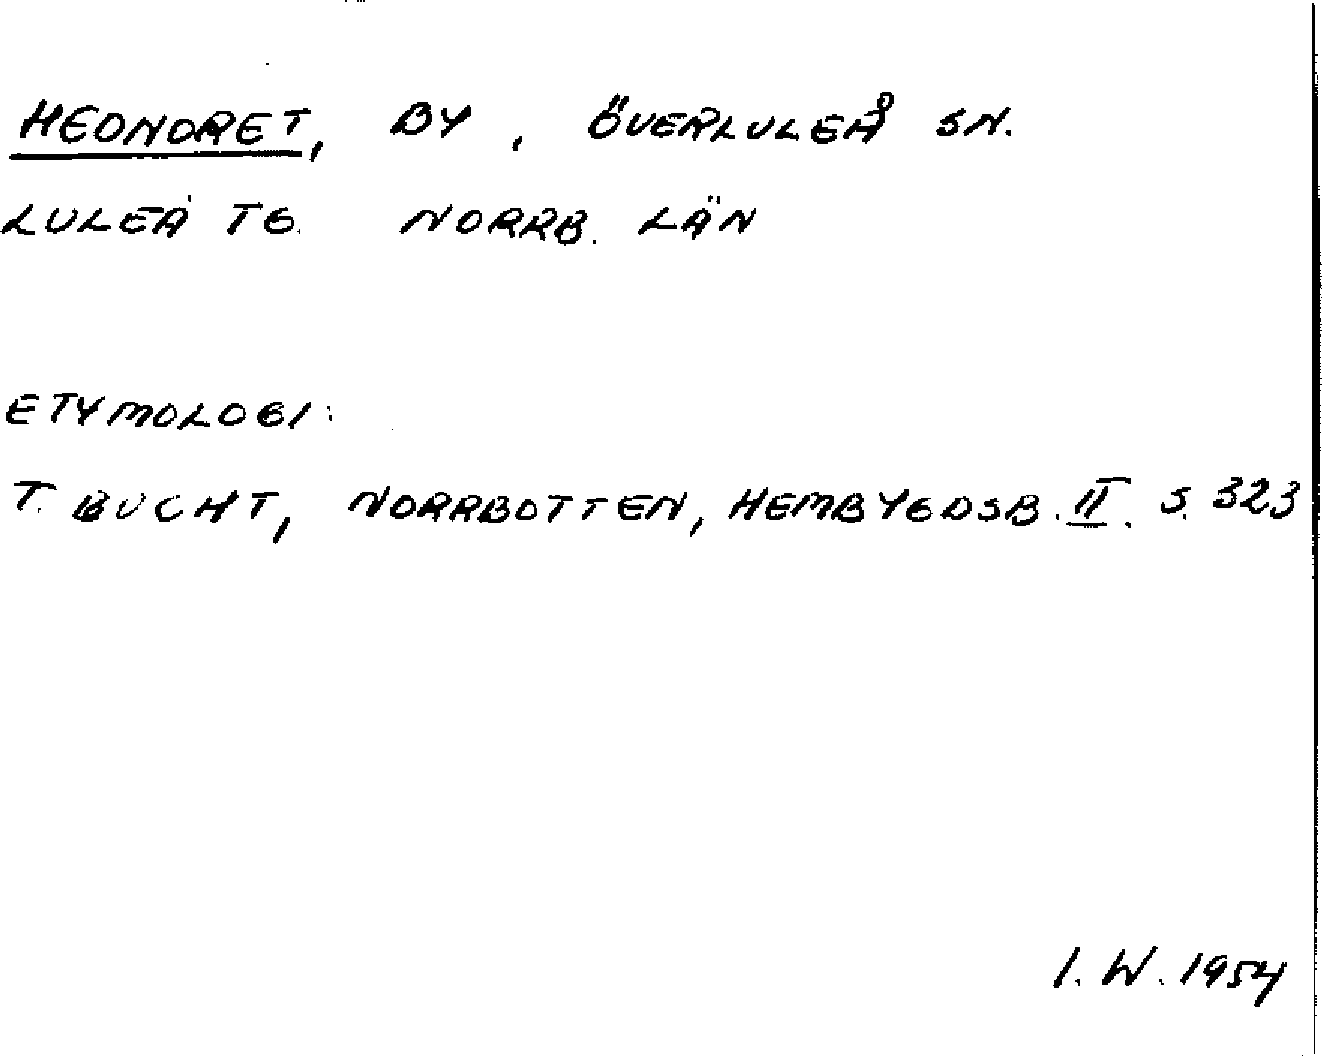 HEDNORET, BY, ÖVERLULEÅ SN.
LULEÅ TG. NORRB. LÄN
ETYMOLOGI:
T. BUCHT, NORRBOTTEN, HEMBYGDSB. II. S. 323
I. W. 1954